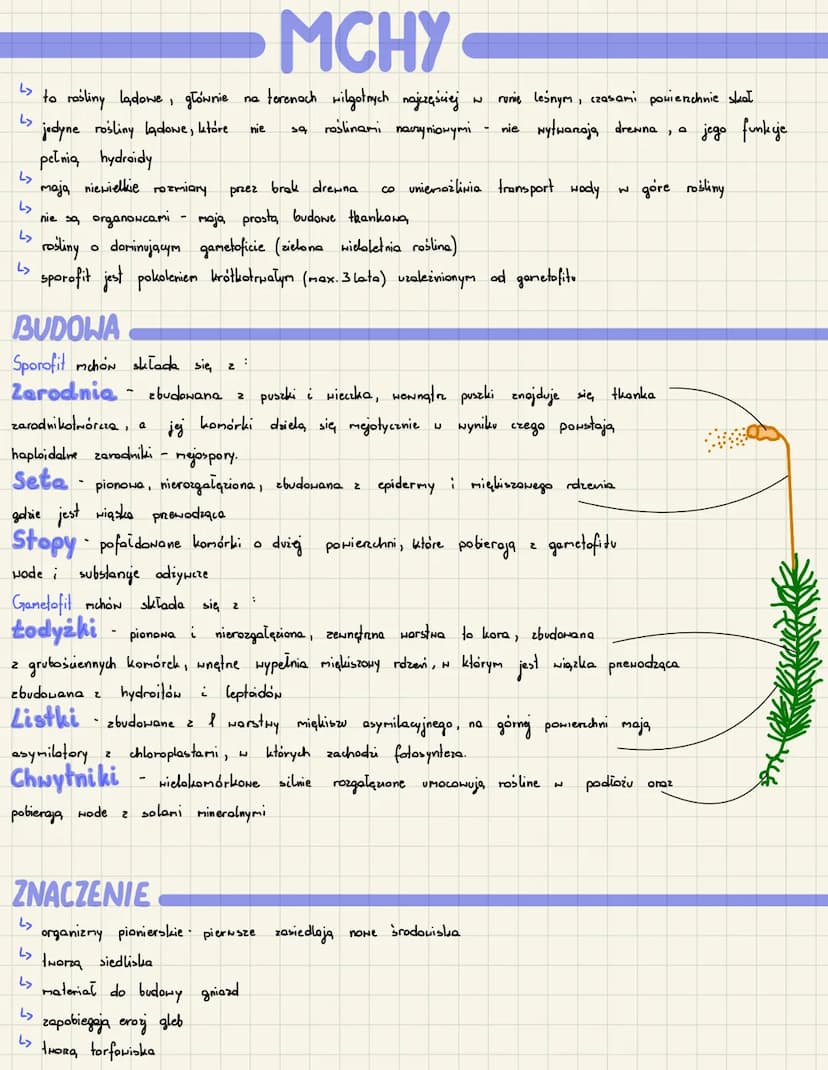 MCHY
↳ to rośliny lądowe, głównie na terenach wilgotnych najczęściej w runie leśnym, czasami powierzchnie skał
↳ jedyne rośliny lądowe, które nie są roślinami naczyniowymi - nie wytwarzają drewna, a jego funkcje
pełnią hydroidy
↳ mają niewielkie rozmiary przez brak drewna co uniemożliwia transport wody w górę rośliny
↳ nie są organowcami - mają prostą budowę tkankową
↳ rośliny o dominującym gametoficie (zielona wieloletnia roślina)
↳ sporofit jest pokoleniem krótkotrwałym (max. 3 lata) uzależnionym od gametofitu
BUDOWA
Sporofit mchów składa się z :
Zarodnia - zbudowana z puszki i wieczka, wewnątrz puszki znajduje się tkanka
zarodnikotwórcza, a jej komórki dzielą się mejotycznie w wyniku czego powstają
haploidalne zarodniki - mejospory.
Seta - pionowa, nierozgałęziona, zbudowana z epidermy i miękiszowego rdzenia
gdzie jest wiązka przewodząca
Stopy - pofałdowane komórki o dużej powierzchni, które pobierają z gametofitu
wodę i substancje odżywcze
Gametofit mchów składa się z :
Łodyżki - pionowa i nierozgałęziona, zewnętrzna warstwa to kora, zbudowana
z grubościennych komórek, wnętrze wypełnia miękiszowy rdzeń, w którym jest wiązka przewodząca
zbudowana z hydroidów i leptoidów
Listki - zbudowane z 1 warstwy miękiszu asymilacyjnego, na górnej powierzchni mają
asymilatory z chloroplastami, w których zachodzi fotosynteza.
Chwytniki - wielokomórkowe silnie rozgałęzione umocowują roślinę w podłożu oraz
pobierają wodę z solami mineralnymi
ZNACZENIE
↳ organizmy pionierskie - pierwsze zasiedlają nowe środowiska
↳ tworzą siedliska
↳ materiał do budowy gniazd
↳ zapobiegają erozji gleb
↳ tworzą torfowiska